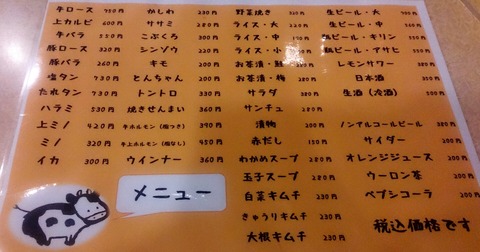 牛ロース 750円
上カルビ 600円
牛バラ
豚ロース 320円
豚バラ 260円
塩タン 730円
たれタン 730円
ハラミ 530円
上ミノ 420円
ミノ 320円
イカ 300円
かしわ 230円
ササミ 280円
こぶくろ 300円
シンゾウ 220円
キモ 200円
とんちゃん 200円
トントロ 330円
焼きせんまい 360円
牛ホルモン(脂つき) 390円
牛上ホルモン(脂なし) 450円
ウインナー 360円
野菜焼き
ライス・大
ライス・中
ライス・小
お茶漬・鮭
お茶漬・梅 280円
サラダ 380円
サンチュ 280円
漬物 200円
赤だし 150円
わかめスープ 280円
玉子スープ 280円
白菜キムチ 230円
きゅうりキムチ 230円
大根キムチ 230円
生ビール・大
生ビール・中
瓶ビール・キリン
瓶ビール・アサヒ
レモンサワー
日本酒
生酒(冷酒)
ノンアルコールビール
サイダー
オレンジジュース
ウーロン茶
ペプシコーラ
メニュー
税込価格です